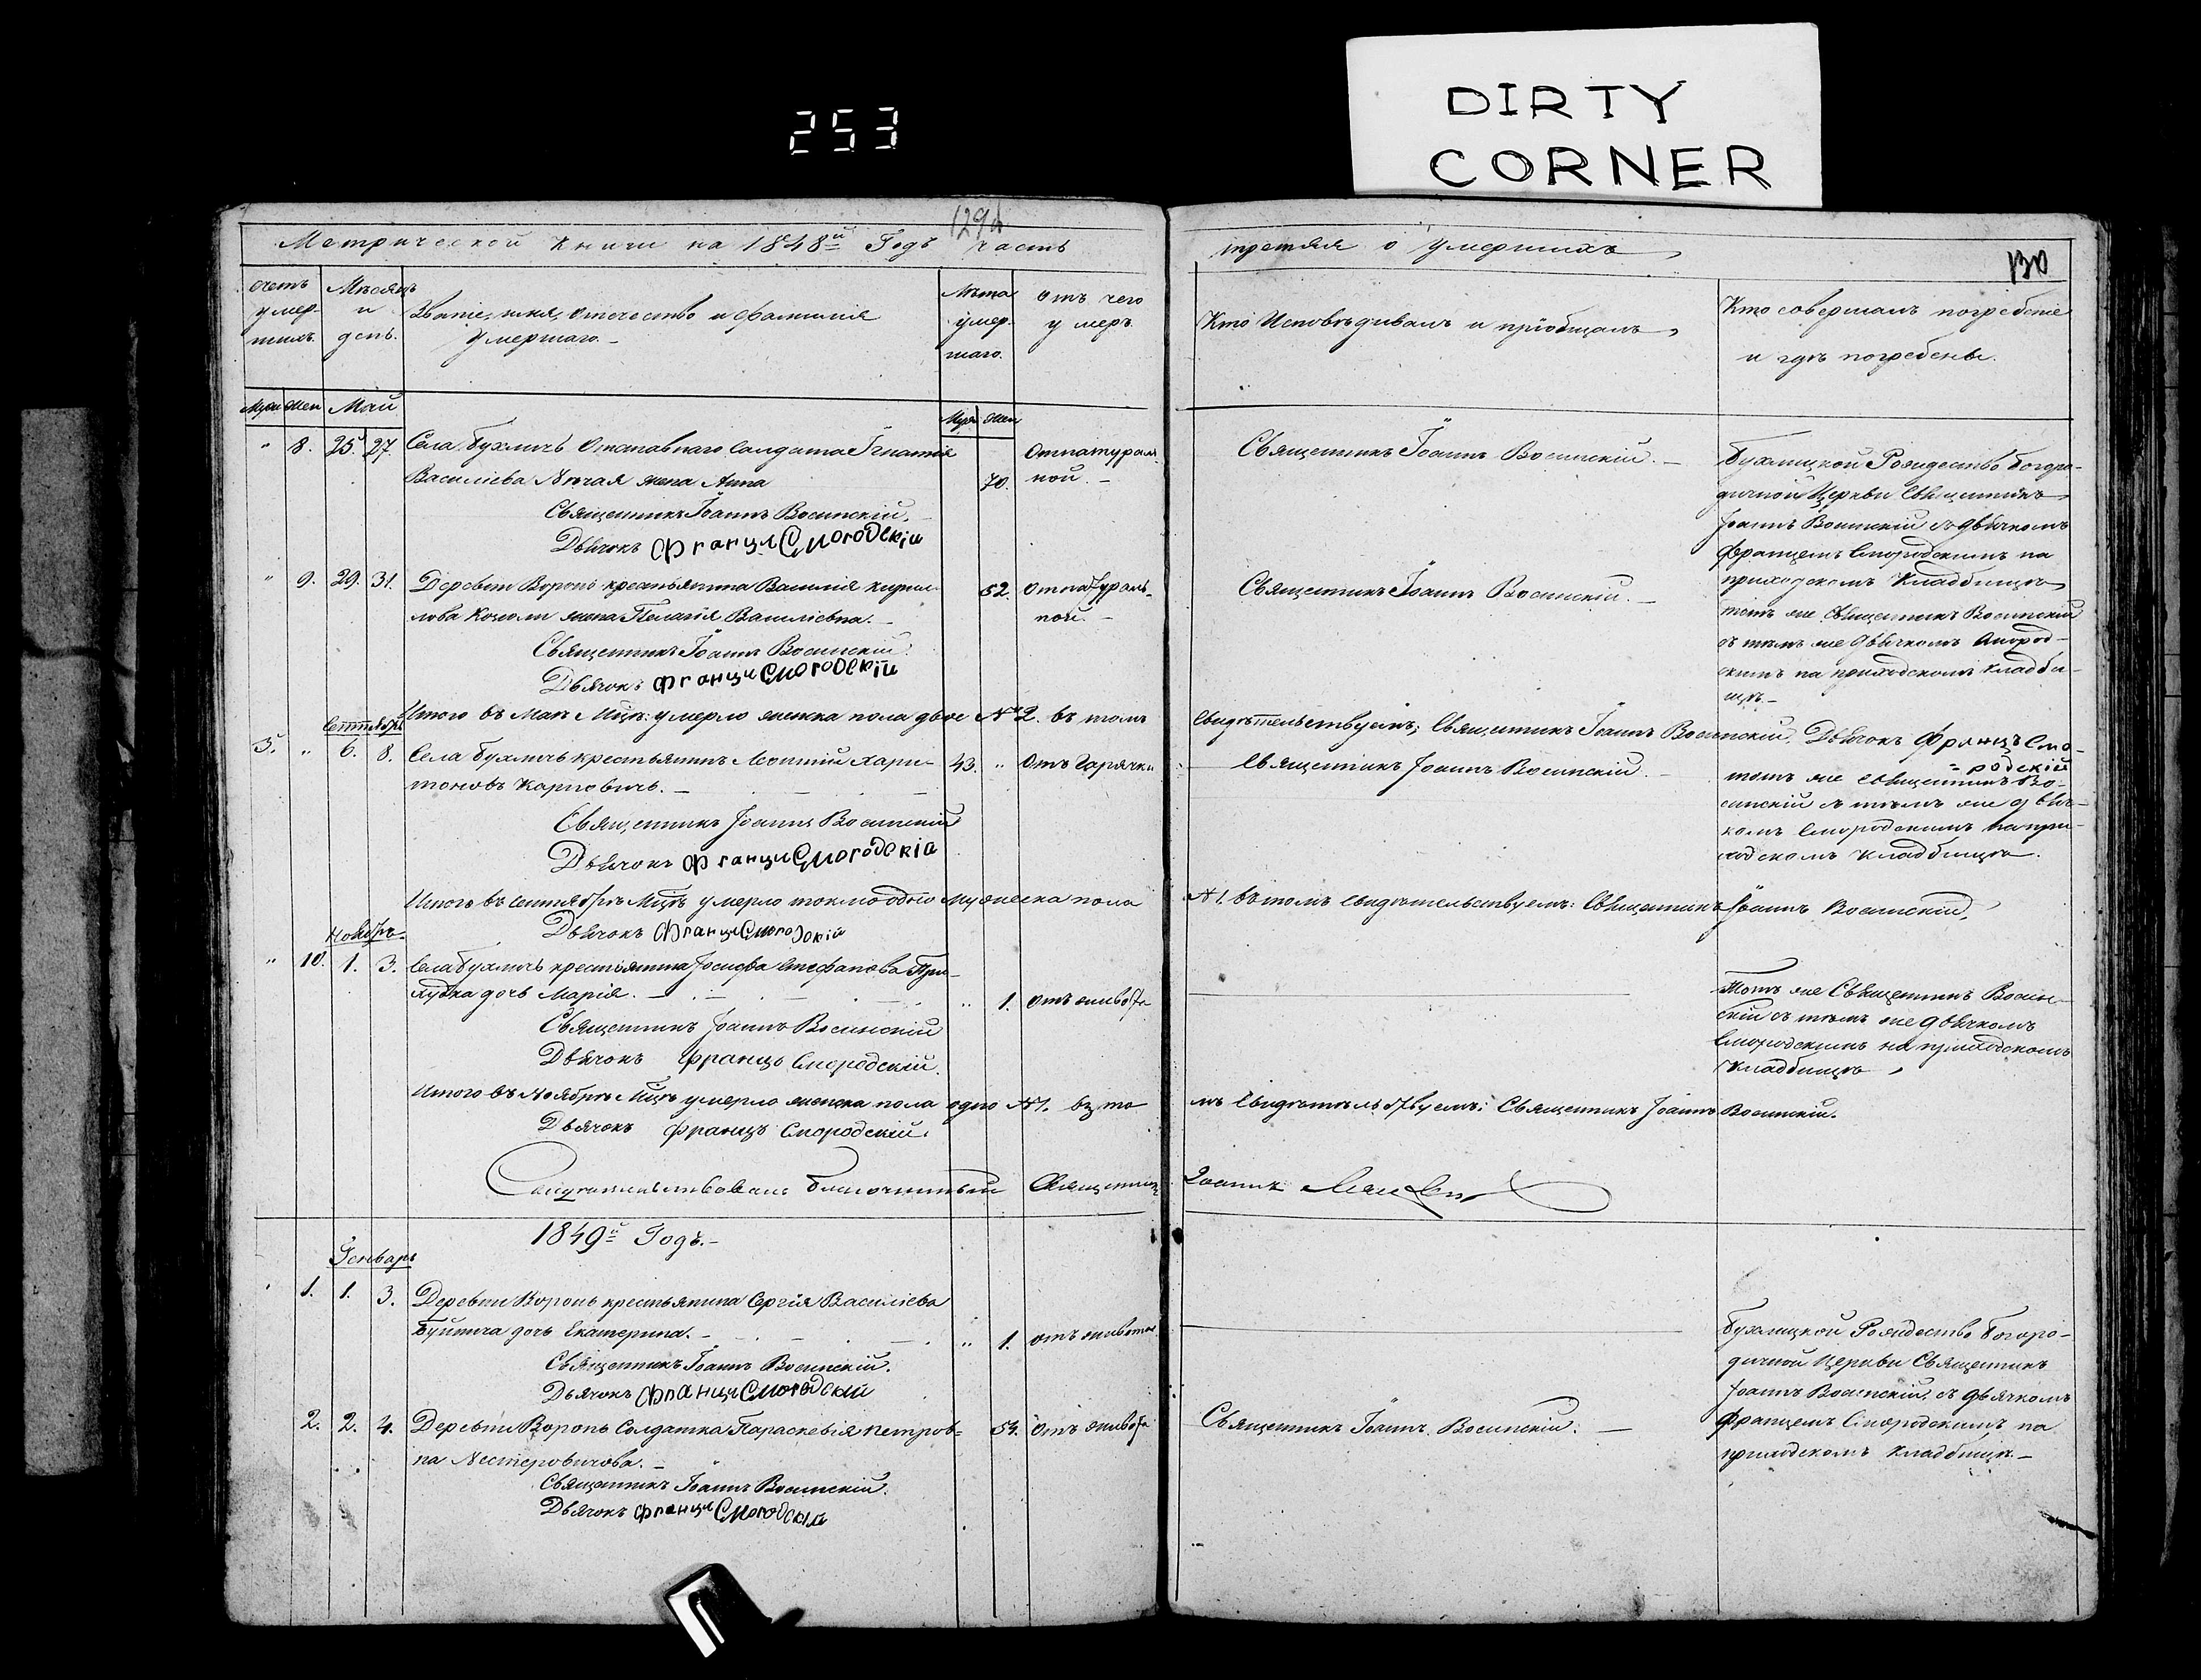 DIRTY
CORNER
253
129
Метрической книги на 1848й Годъ часть
третяя о умершихъ
130
счетъ умер-шихъ.
Мѣсяцъ и день.
Званіе, имя, отечество и фамилія
Умершаго.-
Лѣта умер-шаго.
отъ чего умеръ.
Кто Исповѣдивалъ и пріобщалъ,
Кто совершалъ погребеніе
и гдѣ погребены.
Муж Жен Май
Муж Жен
" 8. 25. 27. Села Бухличъ Отставнаго Солдата Игнатія
Василіева жена Анна 70. Отнатураль-
ной.-
Священникъ Іоаннъ Восинскій.
Дьячокъ Францъ Смородскій
Священникъ Іоаннъ Восинскій.-
Бухлицкой Рождество Богоро-
дичной Церкви Священникъ
Іоаннъ Восинскій съ дьячкомъ
Францемъ Смородскимъ на
приходскомъ Кладбищѣ,
" 9. 29. 31. Деревни Воронь крестьянина Василія Кирил-
лова жена Пелагія Василіевна.- 52. отнатураль-
ной.-
Священникъ Іоаннъ Восинскій.
Дьячокъ Францъ Смородскій
Священникъ Іоаннъ Восинскій.-
тотъ же Священникъ Восинскій
съ тѣмъ же дьячкомъ Смород-
скимъ на приходскомъ кладби-
щѣ.-
Итого въ Маѣ Мцѣ: умерло женска пола двое №2. въ томъ
свидѣтельствуемъ; Священникъ Іоаннъ Восинскій. Дьячокъ Францъ Смо-
=родскій
Сентябрь
3. " 6. 8. Села Бухличъ крестьянинъ Леонтій Хари- 43. " Отъ Горячки
тоновъ Карповичъ.-
Священникъ Іоаннъ Восинскій
Дьячокъ Францъ Смородскій
Священникъ Іоаннъ Восинскій.-
тотъ же священникъ Во-
синскій съ тѣмъ же дьяч-
комъ Смородскимъ на при-
ходскомъ кладбищѣ.
Итого въ Сентябрѣ Мцѣ умерло токмо одно мужеска пола
№1. въ томъ свидѣтельствуемъ: Священникъ Іоаннъ Восинскій,
Дьячокъ Францъ Смородскій
Ноябрь.
" 10. 1. 3. Села Бухличъ крестьянина Іосифа Стефанова При-
дочь Марія.- " 1. отъ живота
Священникъ Іоаннъ Восинскій
Дьячокъ Францъ Смородскій.
Тотъ же Священникъ Восин-
скій съ тѣмъ же дьячкомъ
Смородскимъ на приходскомъ
Кладбищѣ,
Итого въ Ноябрѣ Мцѣ умерло женска пола одно №1. въ то
мъ свидѣтельствуемъ: Священникъ Іоаннъ Восинскій.
Дьячокъ Францъ Смородскій.
Свидѣтельствовалъ Благочинный Священникъ
Іоаннъ
1849й Годъ.-
Генварь
" 1. 1. 3. Деревни Воронь крестьянина Сергія Василіева
дочь Екатерина.- " 1. отъ живота
Священникъ Іоаннъ Восинскій.
Дьячокъ Францъ Смородскій
Бухлицкой Рождество Богоро-
дичной Церкви Священникъ
Іоаннъ Восинскій, съ дьячкомъ
Францемъ Смородскимъ на
приходскомъ кладбищѣ.-
2. 2. 4. Деревни Воронь Солдатка Параскевія Петров= 54. отъ живота
на Нестеровичова.-
Священникъ Іоаннъ Восинскій.
Дьячокъ Францъ Смородскій
Священникъ Іоаннъ Восинскій.-